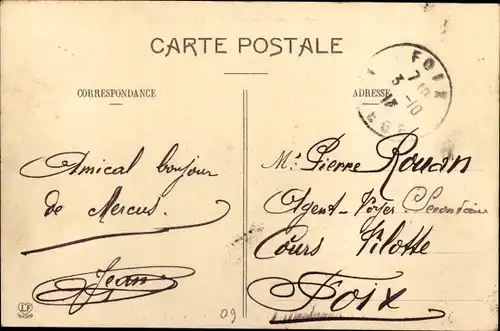 CARTE POSTALE
CORRESPONDANCE
ADRESSE
FOIX
7
3 -10
13
Amical bonjour
de Mercus.
Jean
Mr. Pierre Rouan
Agent-Voyer Secondaire
Cours Vilotte
Foix
09
LF